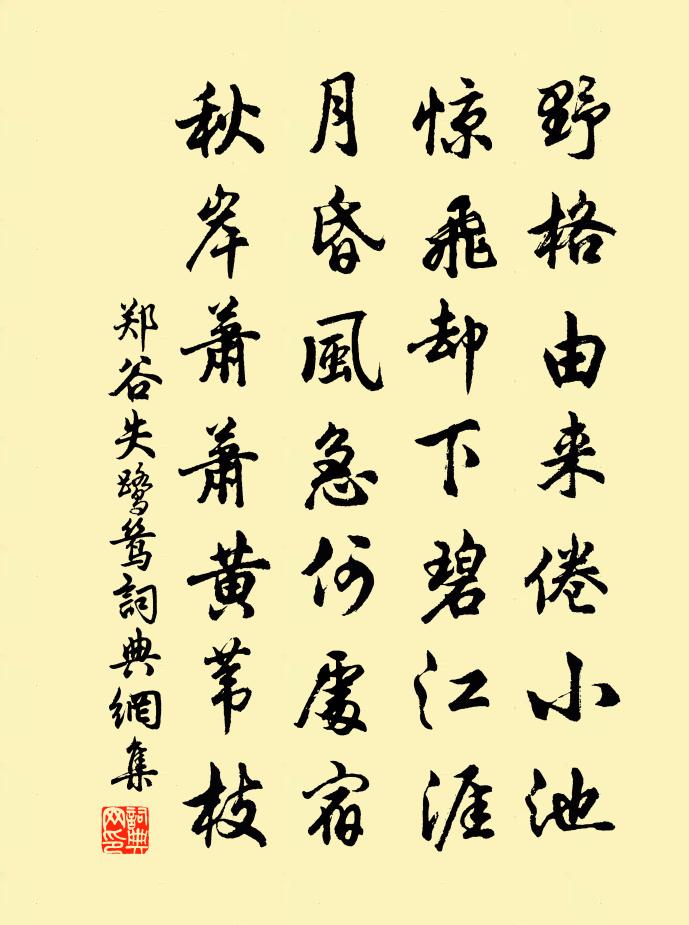 野格由来倦小池
惊飛却下碧江涯
月昏風急何處宿
秋岸蕭蕭黄苇枝
郑谷失鹭鸶詞典網集
詞典网印